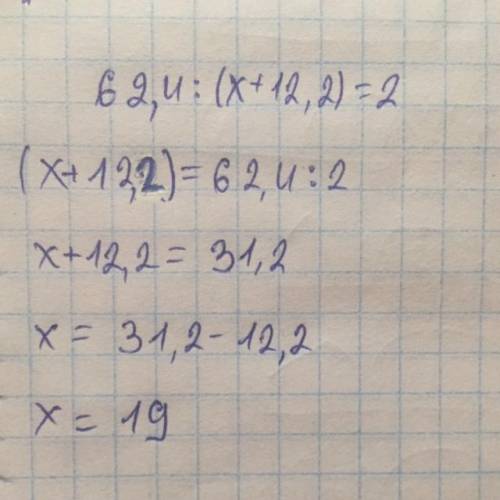 62,4:(x+12,2)=2
(x+12,2)=62,4:2
x+12,2=31,2
x=31,2-12,2
x=19